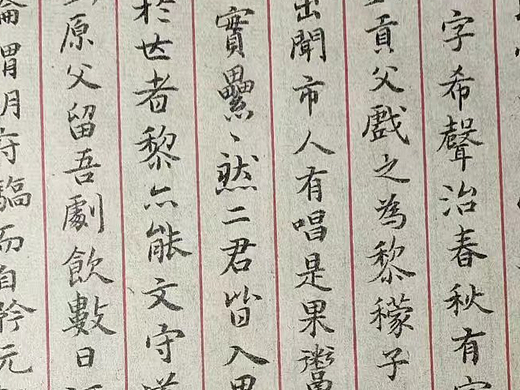 字希聲治春秋有
貢父戲之為黎檬子
出聞市人有唱是果鬻
實纍々然二君皆入黑
於世者黎亦能文守道
原父留吾劇飲數日
論謂明府騶而自矜元